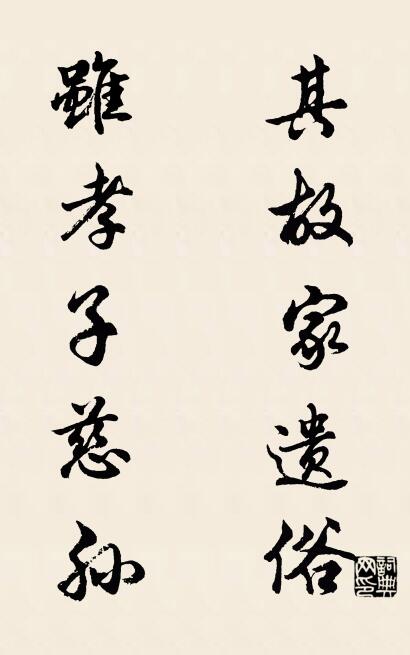 其故家遗俗
雖孝子慈孫
詞典网印